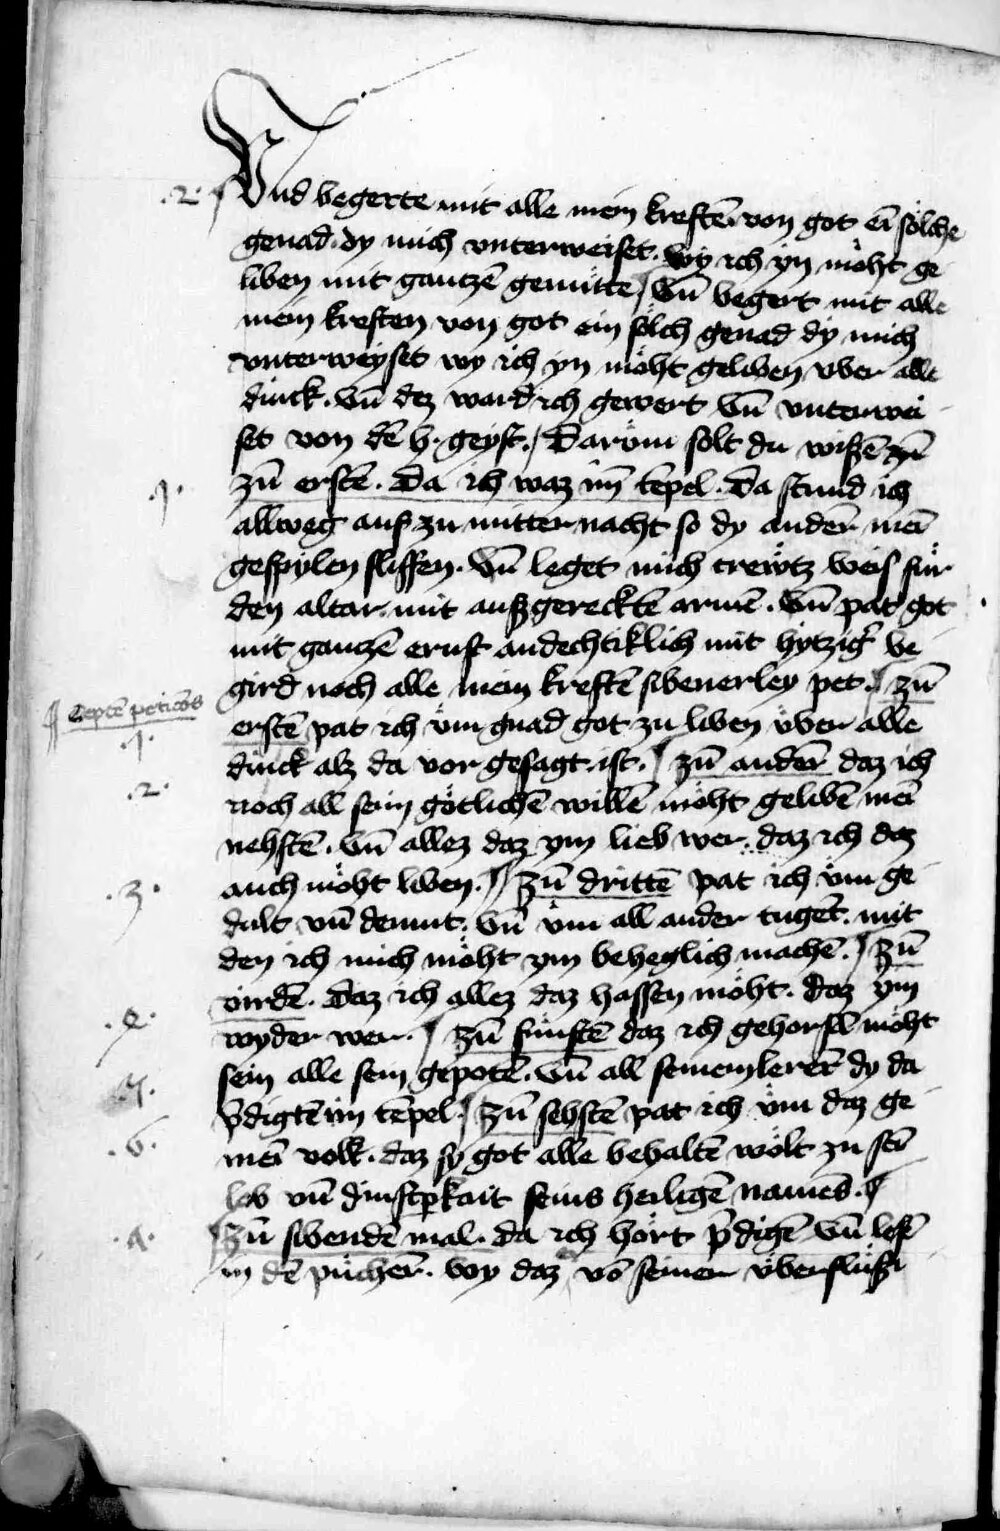 .2. Vnd begerte mit alle mein kreftē von got ei sölche
genad. dy mich vnterweiset. wy ich yn möht ge
liben mit gantzē gemütte Vn̄ begert mit alle
mein kreften von got ein sölch genad dy mich
vnterweyset wy ich yn möht geliben vber alle
dinck. Vn̄ dez ward ich gewert Vn̄ vnterwei
set von dē h. geyst. Darüm solt du wißē
.1. zū erstē. Da ich waz im̄ tēpel. Da stund ich
allweg auf zu mitternacht so dy andeŕ mei
gespylen sliffen. Vn̄ leget mich crewtz weis für
den altar. mit auß gereckte armē. Vn̄ pat got
mit ganczē ernst andechtiklich mit hytzigr̄ be
gird noch alle mein kreftē sibenerley pet. zū
Septē peticōes
.1. erstē pat ich üm gnad got zu liben über alle
dinck alz da vor gesagt ist. zū andeŕ daz ich
.2. noch all sein götlichē willē möht gelibē mei
nehstē. Vn̄ allez daz ym lieb wer. daz ich daz
.3. auch möht liben. zū drittē pat ich üm ge
dult vn̄ demut. Vn̄ üm all ander tugēt. mit
den ich mich möht ym beheglich machē. zū
.4. virdē. Daz ich allez daz hassen möht. daz ym
wyder wer. zū fünftē daz ich gehorsā möht
.5. sein alle sein gepotē. Vn̄ all seinem lereŕ dy da
p̄digtē im tēpel. zū sehstē pat ich üm daz ge
.6. mei volk. daz sy got alle behaltē wölt zu sei
lob vn̄ dinstp̄kait seins heiligē names.
.7. Zū sibendē mal. da ich hört p̄digē Vn̄ lesē
in dē püchern̄. wy daz vō seiner überflüßi